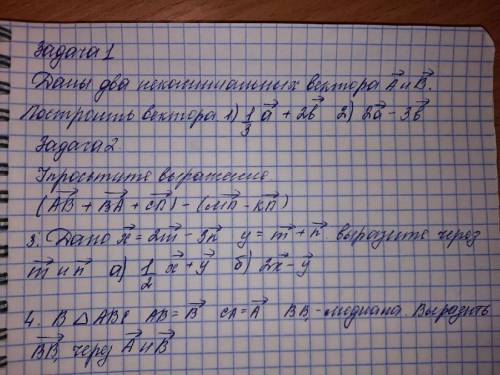 Задача 1
Даны два неколлинеальных вектора A⃗ и B⃗.
Построить вектора 1) 1/3 a⃗ + 2b⃗ 2) 2a⃗ - 3b⃗
Задача 2
Упростите выражение
(AB⃗ + BA⃗ + CП⃗) - (MП⃗ - KП⃗)
3. Дано x⃗ = 2m⃗ - 3n⃗ y = m⃗ + n⃗ выразите через
m⃗ и n⃗ а) 1/2 x⃗ + y⃗ б) 2x⃗ - y⃗
4. В △ ABC AB⃗ = B⃗ CA⃗ = A⃗ BB₁ - медиана. Выразить
BB₁⃗ через A⃗ и B⃗